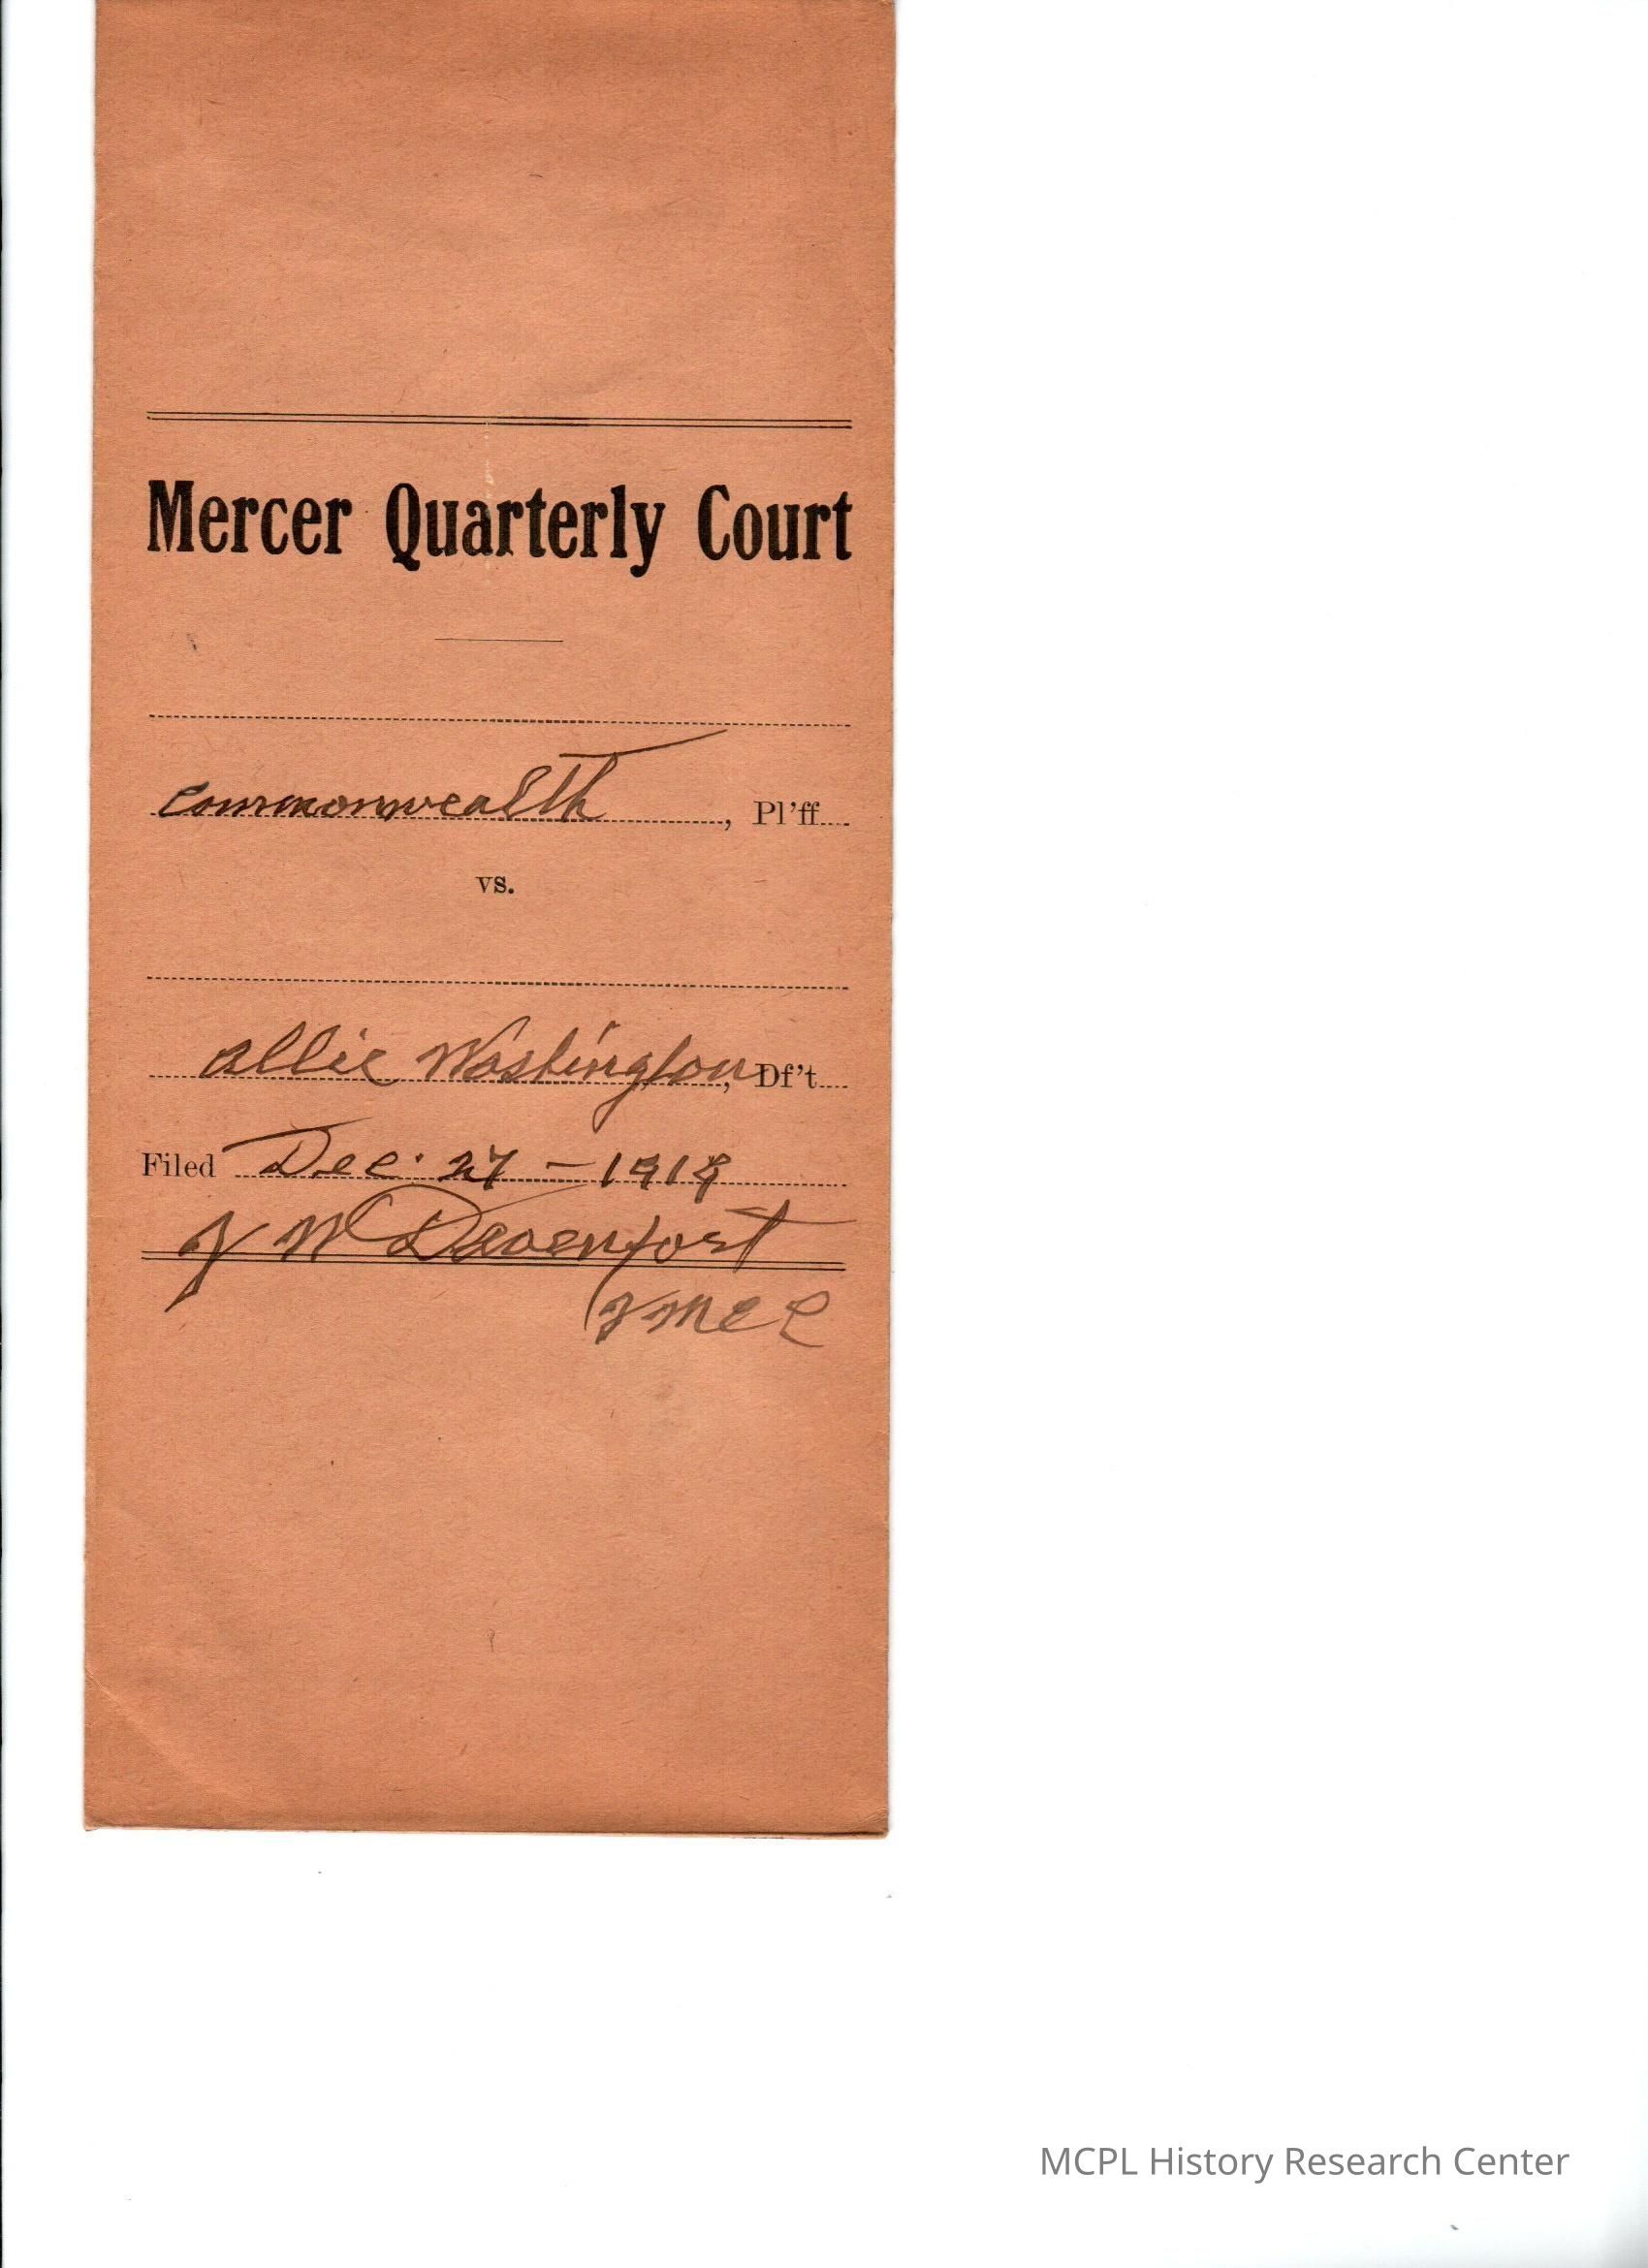 Mercer Quarterly Court
Commonwealth, Pl'ff
vs.
Allie Washington, Df't
Filed Dec. 27 - 1918
Devenport
MCPL History Research Center